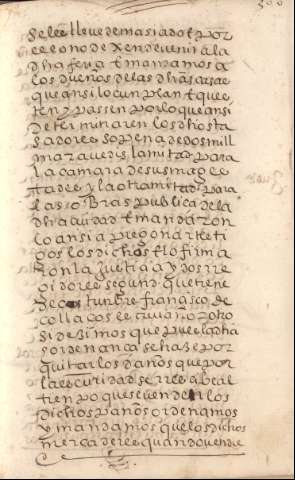 se le lleve demasiado t por
ee e o no dexen de venir a la
dha feria t mandamos a
los dueños de las dhas casas
que ansi lo cunplan t quee
ten y passen por lo que ansi
determinaren los dhos ta
sadores so pena de dos mill
maravedis la mitad para
la camara de sus mage
tadee y la otra mitad para
las oBras publica de la
dha ciudad t mandaron
lo ansi a pregonar te ti
gos los dichos t lo firma
ron la justicia y dos rre
gidores segund que tiene
de costunbre francisco de
collacos
si dezimos que puee la dha
hordenança se haze por
quitar los daños que por
la escuridad se rrecibe al
tienpo que se venden los
dichos paños ordenamos
y mandamos que los dichos
mercaderee quando vendie